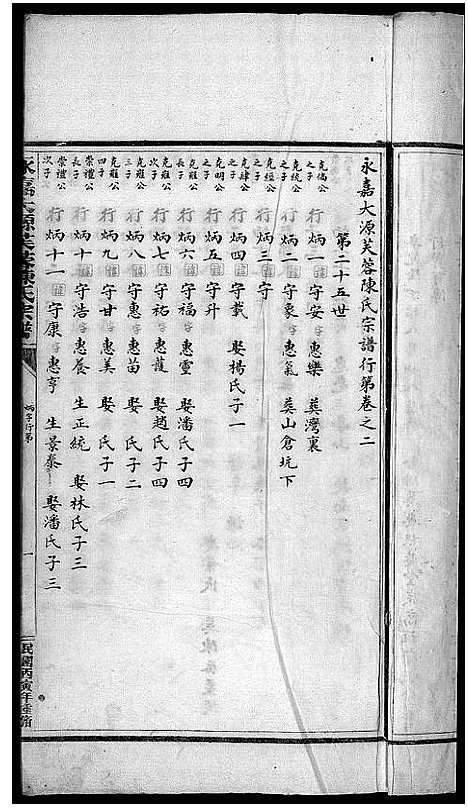 永嘉大源芙蓉陳氏宗譜行第卷之二
第二十五世
克偹公之子 行炳一 諱守安 字惠樂 葬灣裏
克統公之子 行炳二 諱守象 字惠氣 葬山倉坑下
克經公之子 行炳三 諱守
克肆公之子 行炳四 諱守載 娶楊氏子一
克明公之子 行炳五 諱守升
克雍公長子 行炳六 諱守福 字惠靈 娶潘氏子四
克雍公次子 行炳七 諱守祐 字惠蒦 娶趙氏子四
克雍公三子 行炳八 諱守惠 字惠苗 娶 氏子二
克雍公四子 行炳九 諱守甘 字惠美 娶 氏子一
崇禮公長子 行炳十 諱守浩 字惠養 生正統 娶林氏子三
崇禮公次子 行炳十一 諱守康 字惠亨 生景泰 娶潘氏子三
永嘉大源芙蓉陳氏宗譜
炳字行第
一
民國丙寅年重脩